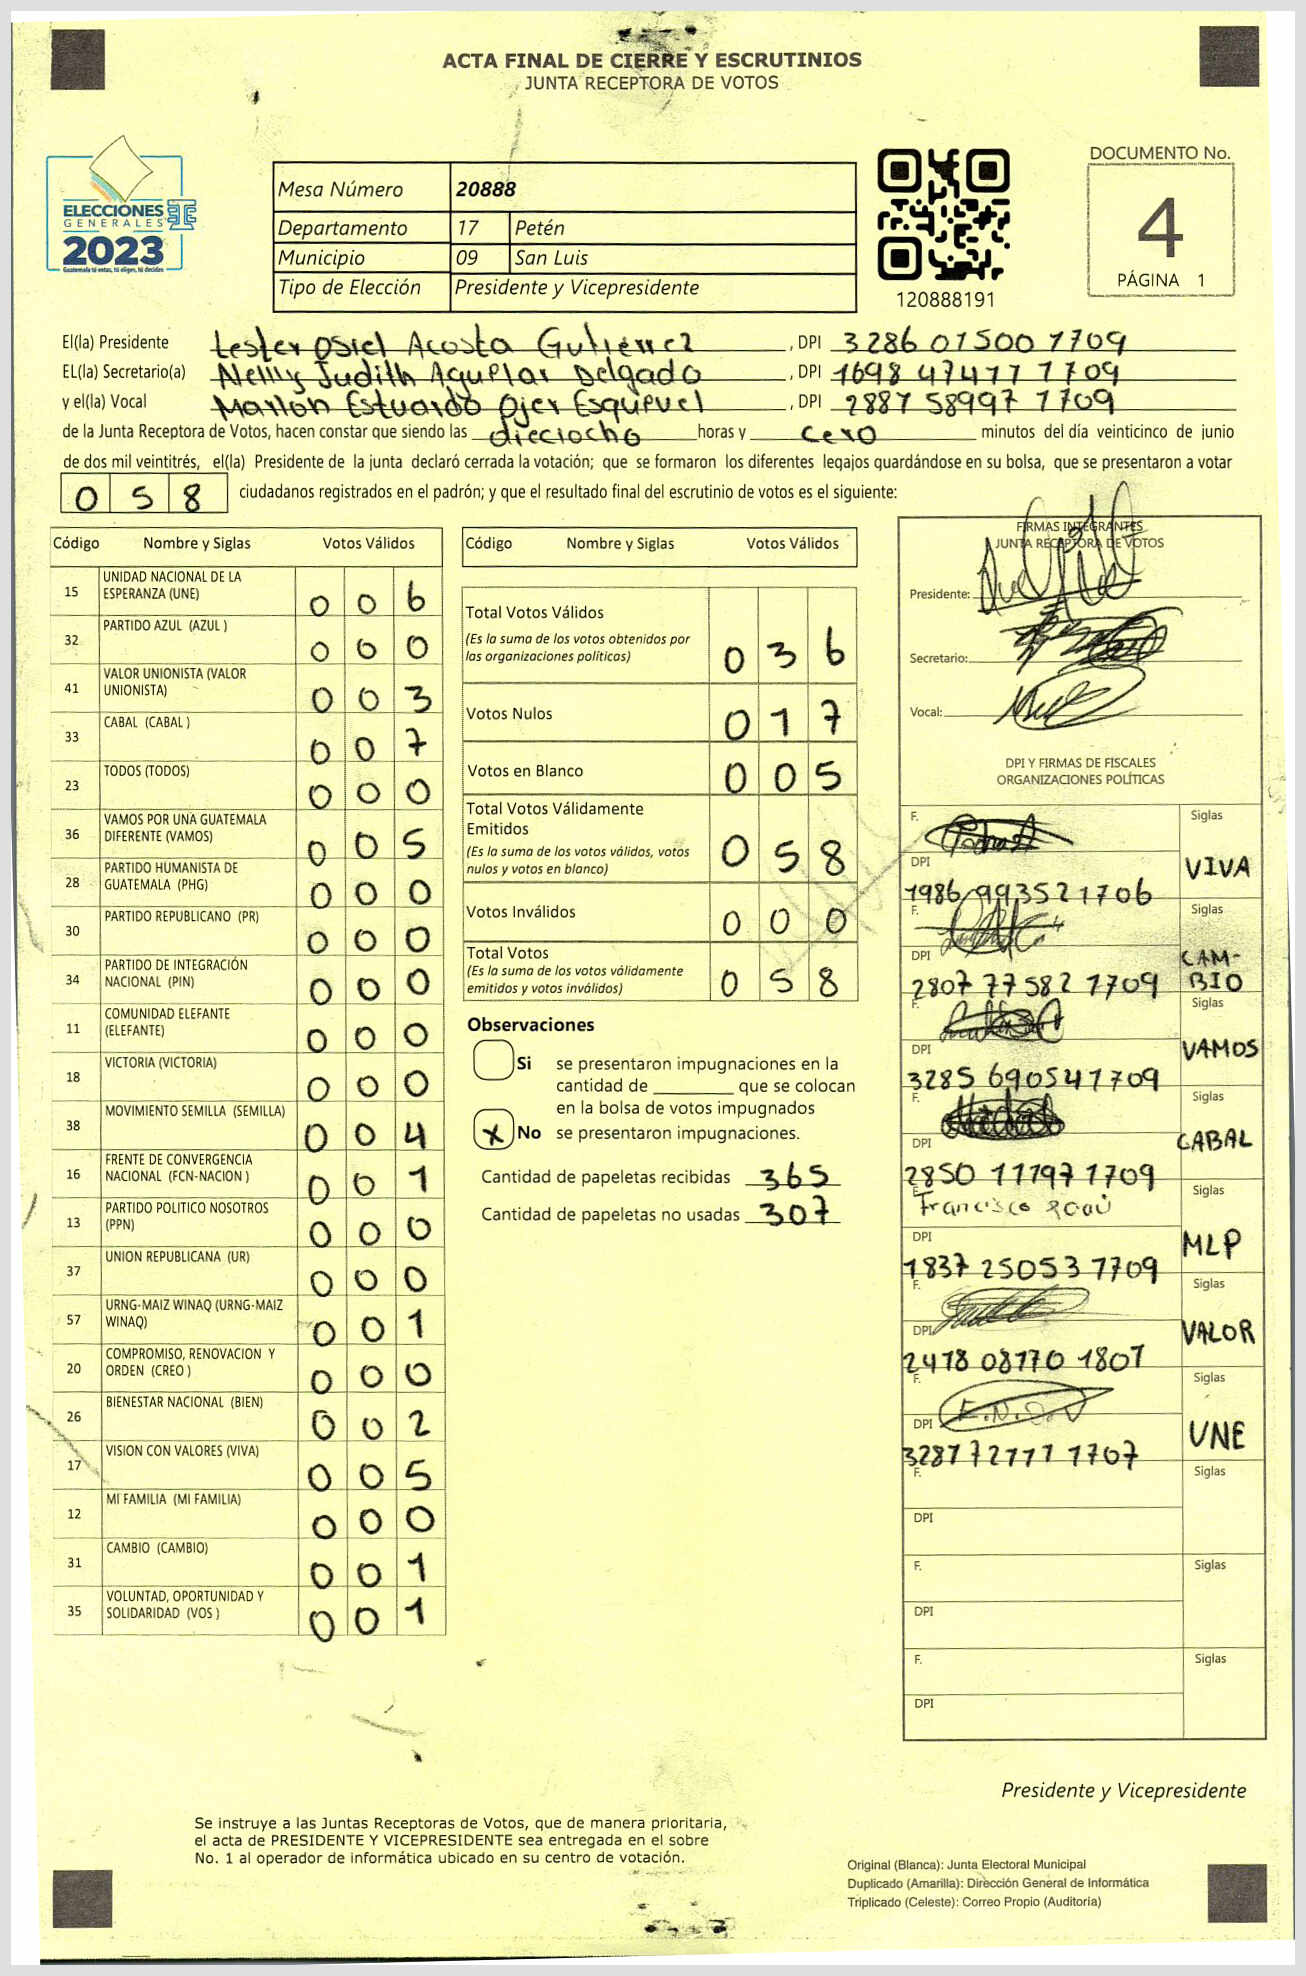 ACTA FINAL DE CIERRE Y ESCRUTINIOS
JUNTA RECEPTORA DE VOTOS
ELECCIONES
GENERALES
2023
Guatemala tú votas, tú eliges, tú decides
Mesa Número 20888
Departamento 17 Petén
Municipio 09 San Luis
Tipo de Elección Presidente y Vicepresidente
120888191
DOCUMENTO No.
4
PÁGINA 1
El(la) Presidente Lester Osiel Acosta Gutiérrez, DPI 3286 01500 1709
EL(la) Secretario(a) Nelly Judith Aguilar Delgado, DPI 1698 47417 1709
y el(la) Vocal Marlon Estuardo Ojer Esquivel, DPI 2887 58997 1709
de la Junta Receptora de Votos, hacen constar que siendo las dieciocho horas y cero minutos del día veinticinco de junio
de dos mil veintitrés, el(la) Presidente de la junta declaró cerrada la votación; que se formaron los diferentes legajos guardándose en su bolsa, que se presentaron a votar
058 ciudadanos registrados en el padrón; y que el resultado final del escrutinio de votos es el siguiente:
Código Nombre y Siglas Votos Válidos
15 UNIDAD NACIONAL DE LA ESPERANZA (UNE) 006
32 PARTIDO AZUL (AZUL ) 000
41 VALOR UNIONISTA (VALOR UNIONISTA) 003
33 CABAL (CABAL ) 007
23 TODOS (TODOS) 000
36 VAMOS POR UNA GUATEMALA DIFERENTE (VAMOS) 005
28 PARTIDO HUMANISTA DE GUATEMALA (PHG) 000
30 PARTIDO REPUBLICANO (PR) 000
34 PARTIDO DE INTEGRACIÓN NACIONAL (PIN) 000
11 COMUNIDAD ELEFANTE (ELEFANTE) 000
18 VICTORIA (VICTORIA) 000
38 MOVIMIENTO SEMILLA (SEMILLA) 004
16 FRENTE DE CONVERGENCIA NACIONAL (FCN-NACION ) 001
13 PARTIDO POLITICO NOSOTROS (PPN) 000
37 UNION REPUBLICANA (UR) 000
57 URNG-MAIZ WINAQ (URNG-MAIZ WINAQ) 001
20 COMPROMISO, RENOVACION Y ORDEN (CREO ) 000
26 BIENESTAR NACIONAL (BIEN) 002
17 VISION CON VALORES (VIVA) 005
12 MI FAMILIA (MI FAMILIA) 000
31 CAMBIO (CAMBIO) 001
35 VOLUNTAD, OPORTUNIDAD Y SOLIDARIDAD (VOS ) 001
Código Nombre y Siglas Votos Válidos
Total Votos Válidos 036
(Es la suma de los votos obtenidos por
las organizaciones políticas)
Votos Nulos 017
Votos en Blanco 005
Total Votos Válidamente
Emitidos 058
(Es la suma de los votos válidos, votos
nulos y votos en blanco)
Votos Inválidos 000
Total Votos 058
(Es la suma de los votos válidamente
emitidos y votos inválidos)
Observaciones
Si se presentaron impugnaciones en la
cantidad de ________ que se colocan
en la bolsa de votos impugnados
X No se presentaron impugnaciones.
Cantidad de papeletas recibidas 365
Cantidad de papeletas no usadas 307
FIRMAS INTEGRANTES
JUNTA RECEPTORA DE VOTOS
Presidente:
Secretario:
Vocal:
DPI Y FIRMAS DE FISCALES
ORGANIZACIONES POLÍTICAS
F. Siglas
DPI VIVA
1986 99352 1706
F. Siglas
DPI CAM-
2807 77582 1709 BIO
F. Siglas
DPI VAMOS
3285 69054 1709
F. Siglas
DPI CABAL
2850 11197 1709
F. Francisco Siglas
DPI MLP
1837 25053 1709
F. Siglas
DPI VALOR
2478 08770 1801
F. Siglas
DPI UNE
3287 72777 1707
F. Siglas
DPI
F. Siglas
DPI
F. Siglas
DPI
Presidente y Vicepresidente
Se instruye a las Juntas Receptoras de Votos, que de manera prioritaria,
el acta de PRESIDENTE Y VICEPRESIDENTE sea entregada en el sobre
No. 1 al operador de informática ubicado en su centro de votación.
Original (Blanca): Junta Electoral Municipal
Duplicado (Amarilla): Dirección General de Informática
Triplicado (Celeste): Correo Propio (Auditoría)